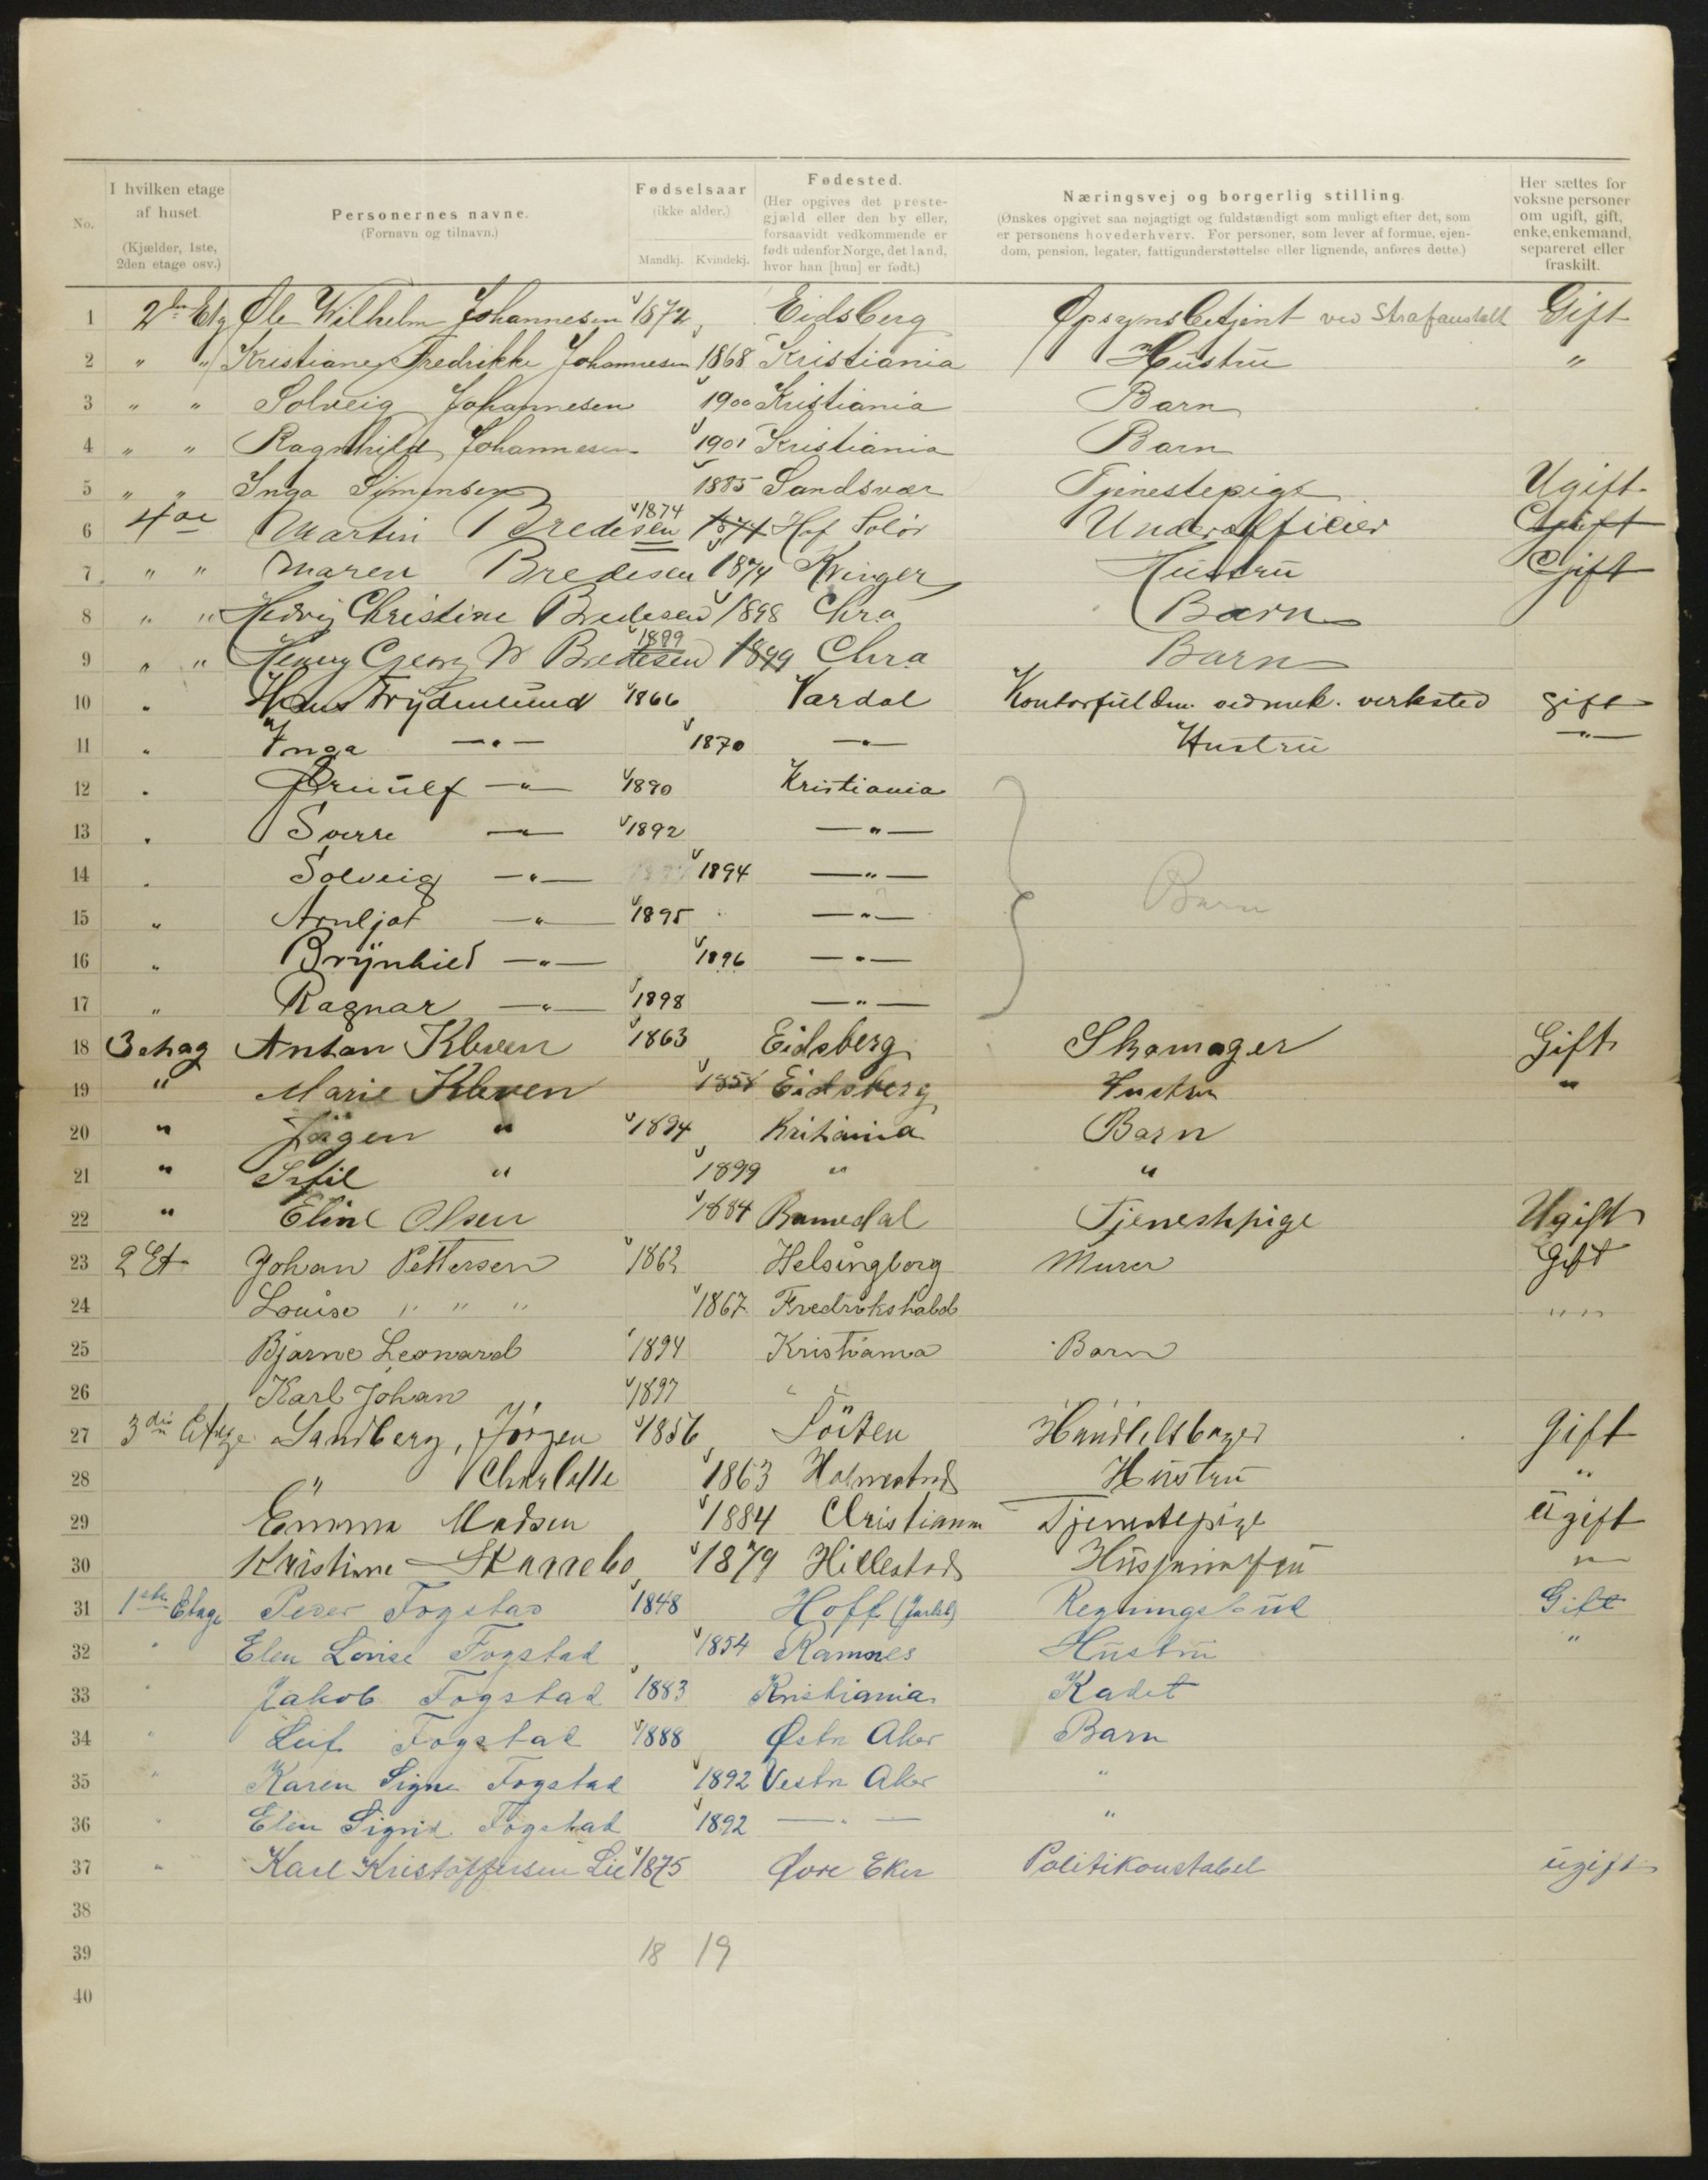 No.
I hvilken etage af huset.
(Kjælder, 1ste, 2den etage osv.)
Personernes navne.
(Fornavn og tilnavn.)
Fødselsaar
(ikke alder.)
Mandkj. Kvindekj.
Fødested.
(Her opgives det præste-
gjæld eller den by eller,
forsaavidt vedkommende er
født udenfor Norge, det land,
hvor han [hun] er født.)
Næringsvej og borgerlig stilling.
(Ønskes opgivet saa nøjagtigt og fuldstændigt som muligt efter det, som
er personens hovederhverv. For personer, som lever af formue, ejen-
dom, pension, legater, fattigunderstøttelse eller lignende, anføres dette.)
Her sættes for
voksne personer
om ugift, gift,
enke, enkemand,
separeret eller
fraskilt.
1 2den Etg Ole Wilhelm Johannesen 1872 Eidsberg Opsynsbetjent ved Strafanstalt Gift
2 " " Kristiane Fredrikke Johannesen 1868 Kristiania Hustru "
3 " " Solveig Johannesen 1900 Kristiania Barn
4 " " Ragnhild Johannesen 1901 Kristiania Barn
5 " " Inga Simensen 1885 Sandsvær Tjenestepige Ugift
6 4de Martin Bredesen 1874 1874 Hof Solør Underofficier Gift
7 " " Maren Bredesen 1874 Kvinger Hustru Gift
8 " " Hedvig Christine Bredesen 1898 Chra Barn
9 " " Henry Georg W Bredesen 1899 1899 Chra Barn
10 " Hans Frydenlund 1866 Vardal Kontorfuldm. ved mek. verksted gift
11 " Inga —"— 1870 —"— Hustru —"—
12 " Ørnulf —"— 1890 Kristiania
13 " Sverre —"— 1892 —"—
14 " Solveig —"— 1894 —"— Barn
15 " Arnljot —"— 1895 —"—
16 " Brynhild —"— 1896 —"—
17 " Ragnar —"— 1898 —"—
18 3 etag Anton Kleven 1863 Eidsberg Skomager Gift
19 " Marie Kleven 1858 Eidsberg Hustru "
20 " Jögen " 1894 Kritiania Barn
21 " " 1899 " "
22 " Eline Olsen 1884 Tjenestpige Ugift
23 2 Et Johan Pettersen 1862 Helsingborg Murer Gift
24 Louise " " " 1867 Fredrikshald " "
25 Bjarne Leonard 1894 Kristiania Barn
26 Karl Johan 1897 " "
27 3die Etage Sandberg, Jörgen 1856 Löiten Handelsbager Gift
28 " Charlotte 1863 Holmestrd Hustru "
29 Emma Madsen 1884 Christiania Tjenestepige ugift
30 Kristine Skarrebo 1879 Hillestad Husjomfru "
31 1ste Etage Peder Fogstad 1848 Hoff (Jarlsb) Regningsbud Gift
32 " Elen Lovise Fogstad 1854 Ramnes Hustru "
33 " Jakob Fogstad 1883 Kristiania Kadet
34 " Leif Fogstad 1888 Østre Aker Barn
35 " Karen Signe Fogstad 1892 Vestre Aker "
36 " Elen Sigrid Fogstad 1892 —"— "
37 " Karl Kristoffersen Lie 1875 Øvre Eker Politikonstabel ugift
38
39 18 19
40